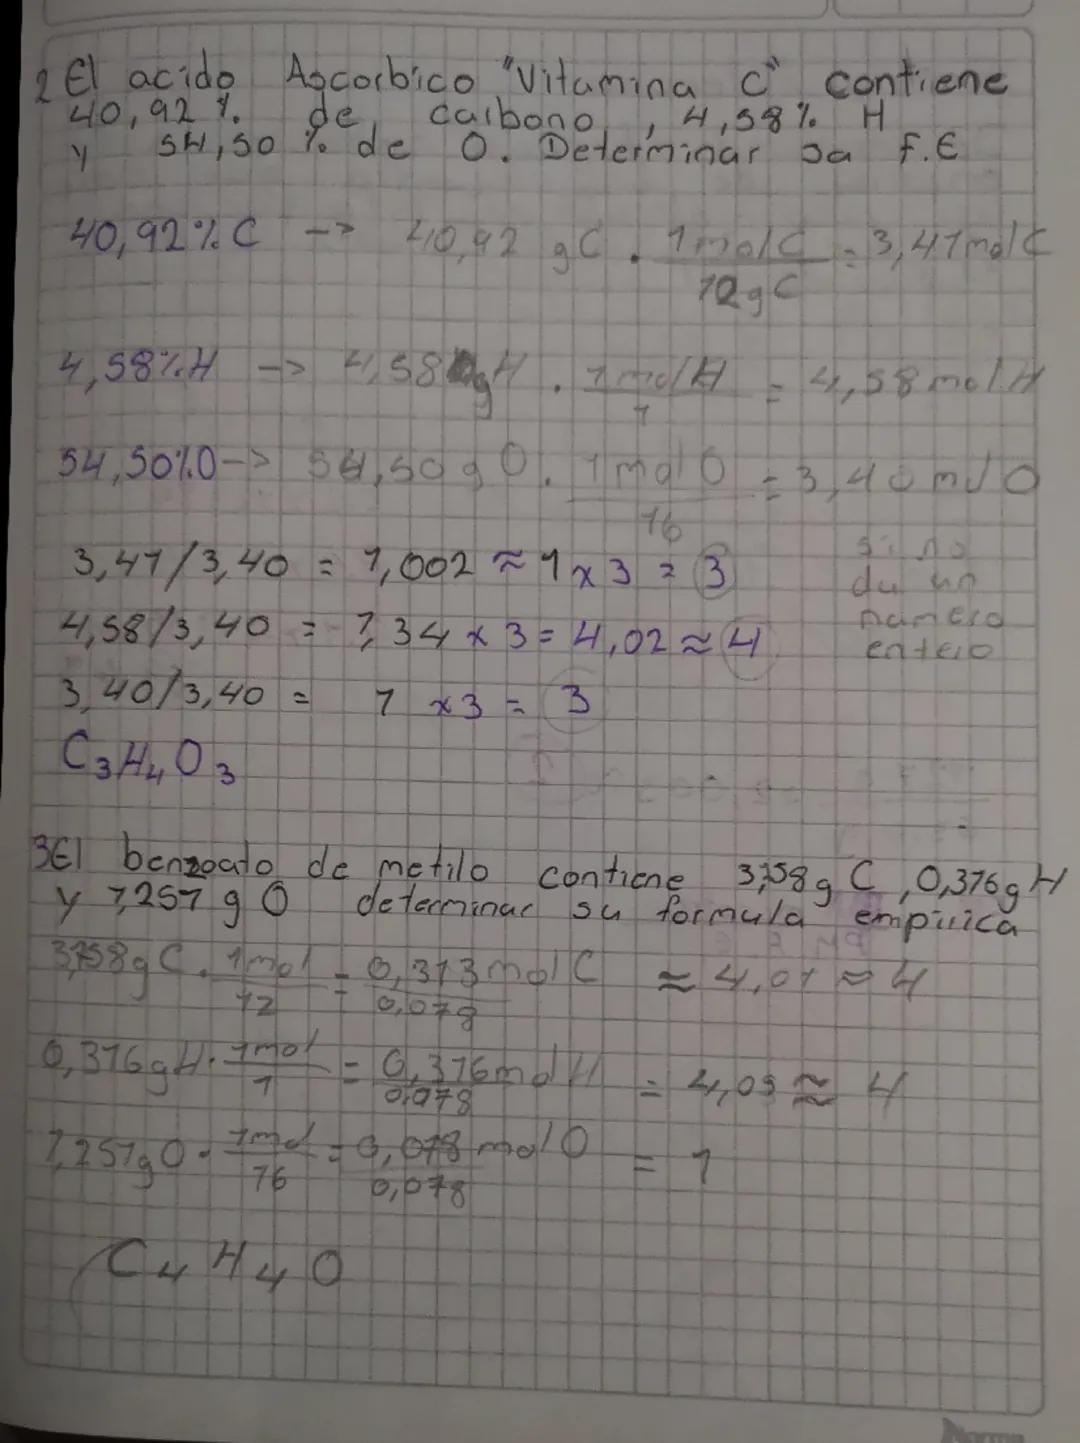 2 El acido Ascorbico "Vitamina C" contiene
40,92 % de carbono, 4,58% H
y 54,50 % de O. Determinar sa F.E
40,92%C -> 40,92 gC . 1molC/12gC = 3,41molC
4,58%H -> 4,58 gH . 1molH/1 = 4,58molH
54,50%O -> 54,50gO . 1molO/16 = 3,40molO
3,41/3,40 = 1,002 ≈ 1 x 3 = 3
si no
da un
numero
entero
4,58/3,40 = 1,34 x 3 = 4,02 ≈ 4
3,40/3,40 = 1 x3 = 3
C3H4O3
3 El benzoato de metilo contiene 3,758g C, 0,376g H
y 1,257 g O determinar su formula empirica
3,758gC . 1mol/12 = 0,313molC/0,078 ≈ 4,01 ≈ 4
0,376gH . 1mol/1 = 0,376molH/0,078 = 4,09 ≈ 4
1,257gO . 1mol/16 = 0,078molO/0,078 = 1
C4H4O
Norma